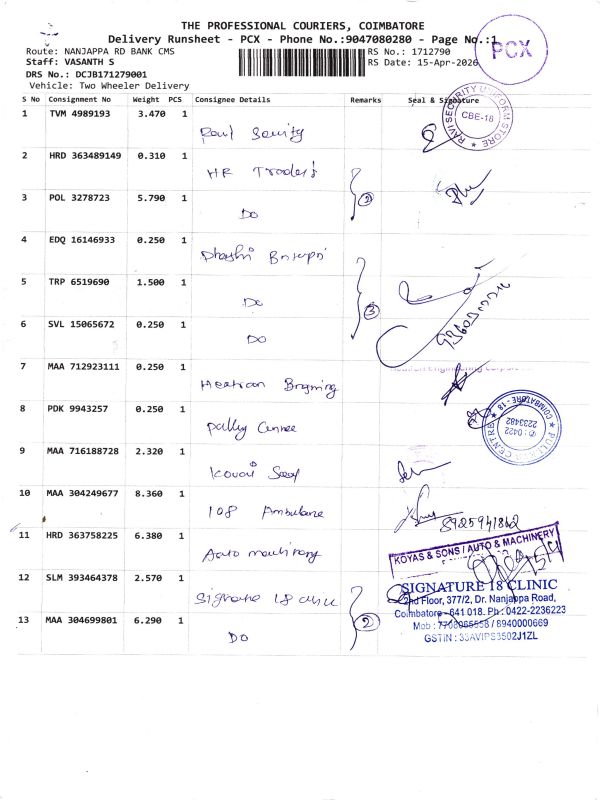 THE PROFESSIONAL COURIERS, COIMBATORE
Delivery Runsheet - PCX - Phone No.:9047080280 - Page No.:1
PCX
Route: NANJAPPA RD BANK CMS
RS No.: 1712790
Staff: VASANTH S
RS Date: 15-Apr-2026
DRS No.: DCJB171279001
Vehicle: Two Wheeler Delivery
S No Consignment No Weight PCS Consignee Details Remarks Seal & Signature
1 TVM 4989193 3.470 1
RAVI SECURITY UNIFORM STORE
CBE-18
2 HRD 363489149 0.310 1
HR Traders
3 POL 3278723 5.790 1
DO
2
4 EDQ 16146933 0.250 1
5 TRP 6519690 1.500 1
DO
6 SVL 15065672 0.250 1
DO
3
7 MAA 712923111 0.250 1
8 PDK 9943257 0.250 1
COIMBATORE - 18
0422 2233482
9 MAA 716188728 2.320 1
Kovai
10 MAA 304249677 8.360 1
108 Ambulance
8925941862
11 HRD 363758225 6.380 1
Auto machinary
KOYAS & SONS / AUTO & MACHINERY
12 SLM 393464378 2.570 1
Signature 18 clinic
SIGNATURE 18 CLINIC
2nd Floor, 377/2, Dr. Nanjappa Road,
Coimbatore-641 018. Ph: 0422-2236223
Mob : 7708065558 / 8940000669
GSTIN : 33AVIPS3502J1ZL
13 MAA 304699801 6.290 1
DO
2